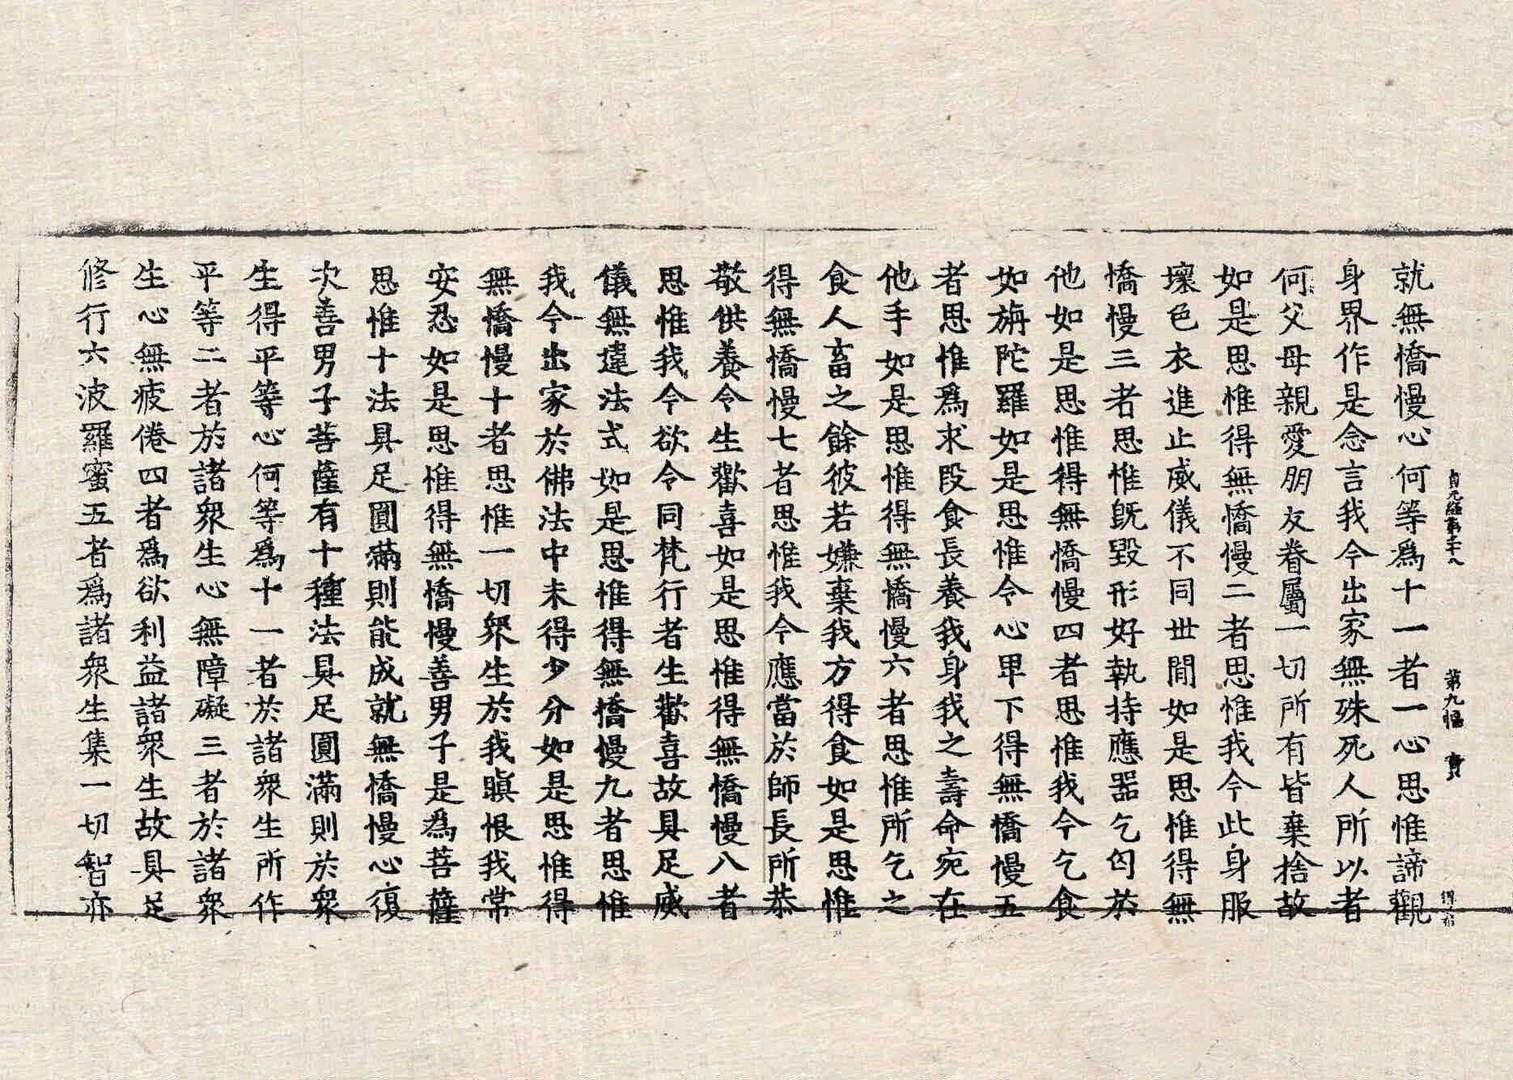 就無憍慢心何等為十一者一心思惟諦觀
身界作是念言我今出家無殊死人所以者
何父母親愛朋友眷屬一切所有皆棄捨故
如是思惟得無憍慢二者思惟我今此身服
壞色衣進止威儀不同世間如是思惟得無
憍慢三者思惟既毀形好執持應器乞匂於
他如是思惟得無憍慢四者思惟我今乞食
如旃陀羅如是思惟令心卑下得無憍慢五
者思惟為求段食長養我身我之壽命宛在
他手如是思惟得無憍慢六者思惟所乞之
食人畜之餘彼若嫌棄我方得食如是思惟
得無憍慢七者思惟我今應當於師長所恭
敬供養令生歡喜如是思惟得無憍慢八者
思惟我今欲令同梵行者生歡喜故具足威
儀無違法式如是思惟得無憍慢九者思惟
我今出家於佛法中未得少分如是思惟得
無憍慢十者思惟一切眾生於我瞋恨我常
安忍如是思惟得無憍慢善男子是為菩薩
思惟十法具足圓滿則能成就無憍慢心復
次善男子菩薩有十種法具足圓滿則於眾
生得平等心何等為十一者於諸眾生所作
平等二者於諸眾生心無障礙三者於諸眾
生心無疲倦四者為欲利益諸眾生故具足
修行六波羅蜜五者為諸眾生集一切智亦